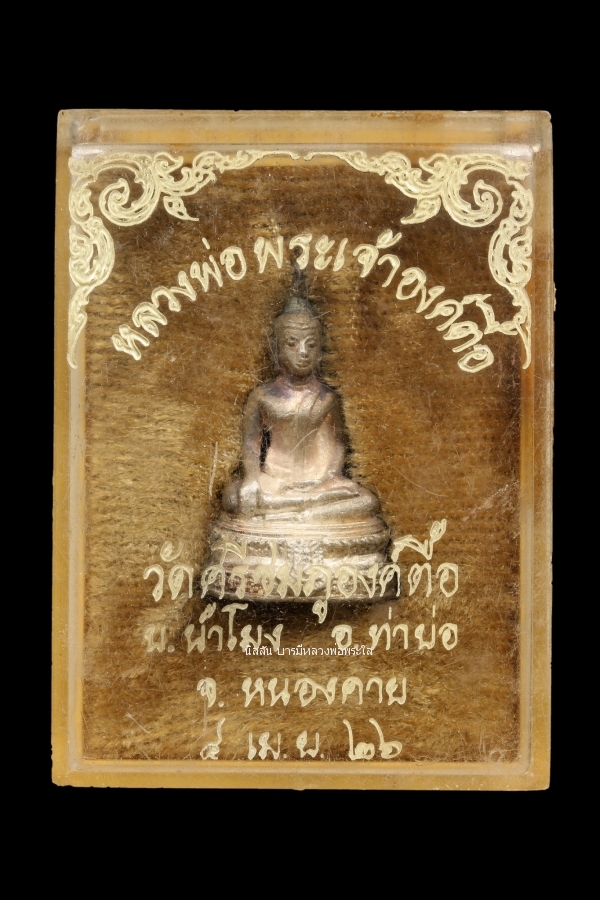 หลวงพ่อพระเจ้าองค์ตื้อ
วัดศรีชมภูองค์ตื้อ
บ.น้ำโมง อ.ท่าบ่อ
นิสสัน บารมีหลวงพ่อพระใส
จ. หนองคาย
๕ เม.ย. ๒๖